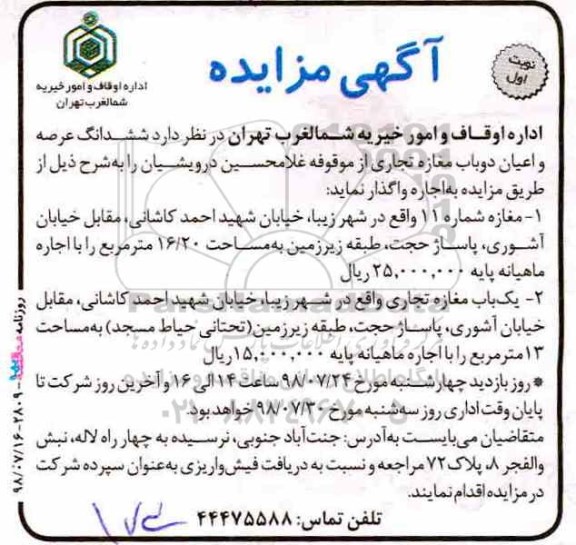 اداره اوقاف و امور خیریه
شمالغرب تهران
آگهی مزایده
نوبت
اول
اداره اوقاف و امور خیریه شمالغرب تهران در نظر دارد ششدانگ عرصه
و اعیان دوباب مغازه تجاری از موقوفه غلامحسین درویشیان را به‌شرح ذیل از
طریق مزایده به‌اجاره واگذار نماید:
۱- مغازه شماره ۱۱ واقع در شهر زیبا، خیابان شهید احمد کاشانی، مقابل خیابان
آشوری، پاساژ حجت، طبقه زیرزمین به‌مساحت ۱۶/۲۰ مترمربع را با اجاره
ماهیانه پایه ۲۵,۰۰۰,۰۰۰ ریال
۲- یک‌باب مغازه تجاری واقع در شهر زیبا، خیابان شهید احمد کاشانی، مقابل
خیابان آشوری، پاساژ حجت، طبقه زیرزمین (تحتانی حیاط مسجد) به‌مساحت
۱۳مترمربع را با اجاره ماهیانه پایه ۱۵,۰۰۰,۰۰۰ریال
*روز بازدید چهارشنبه مورخ ۹۸/۰۷/۲۴ ساعت ۱۴ الی ۱۶ و آخرین روز شرکت تا
پایان وقت اداری روز سه‌شنبه مورخ ۹۸/۰۷/۳۰ خواهد بود.
متقاضیان می‌بایست به‌آدرس: جنت‌آباد جنوبی، نرسیده به چهار راه لاله، نبش
والفجر ۸، پلاک ۷۲ مراجعه و نسبت به دریافت فیش‌واریزی به‌عنوان سپرده شرکت
در مزایده اقدام نمایند.
تلفن تماس: ۴۴۴۷۵۵۸۸
روزنامه
۲۸۰۹ - ۹۸/۰۷/۱۶
ParsNamadData
۰۲۱-۸۸۳۴۹۶۷۰-۵